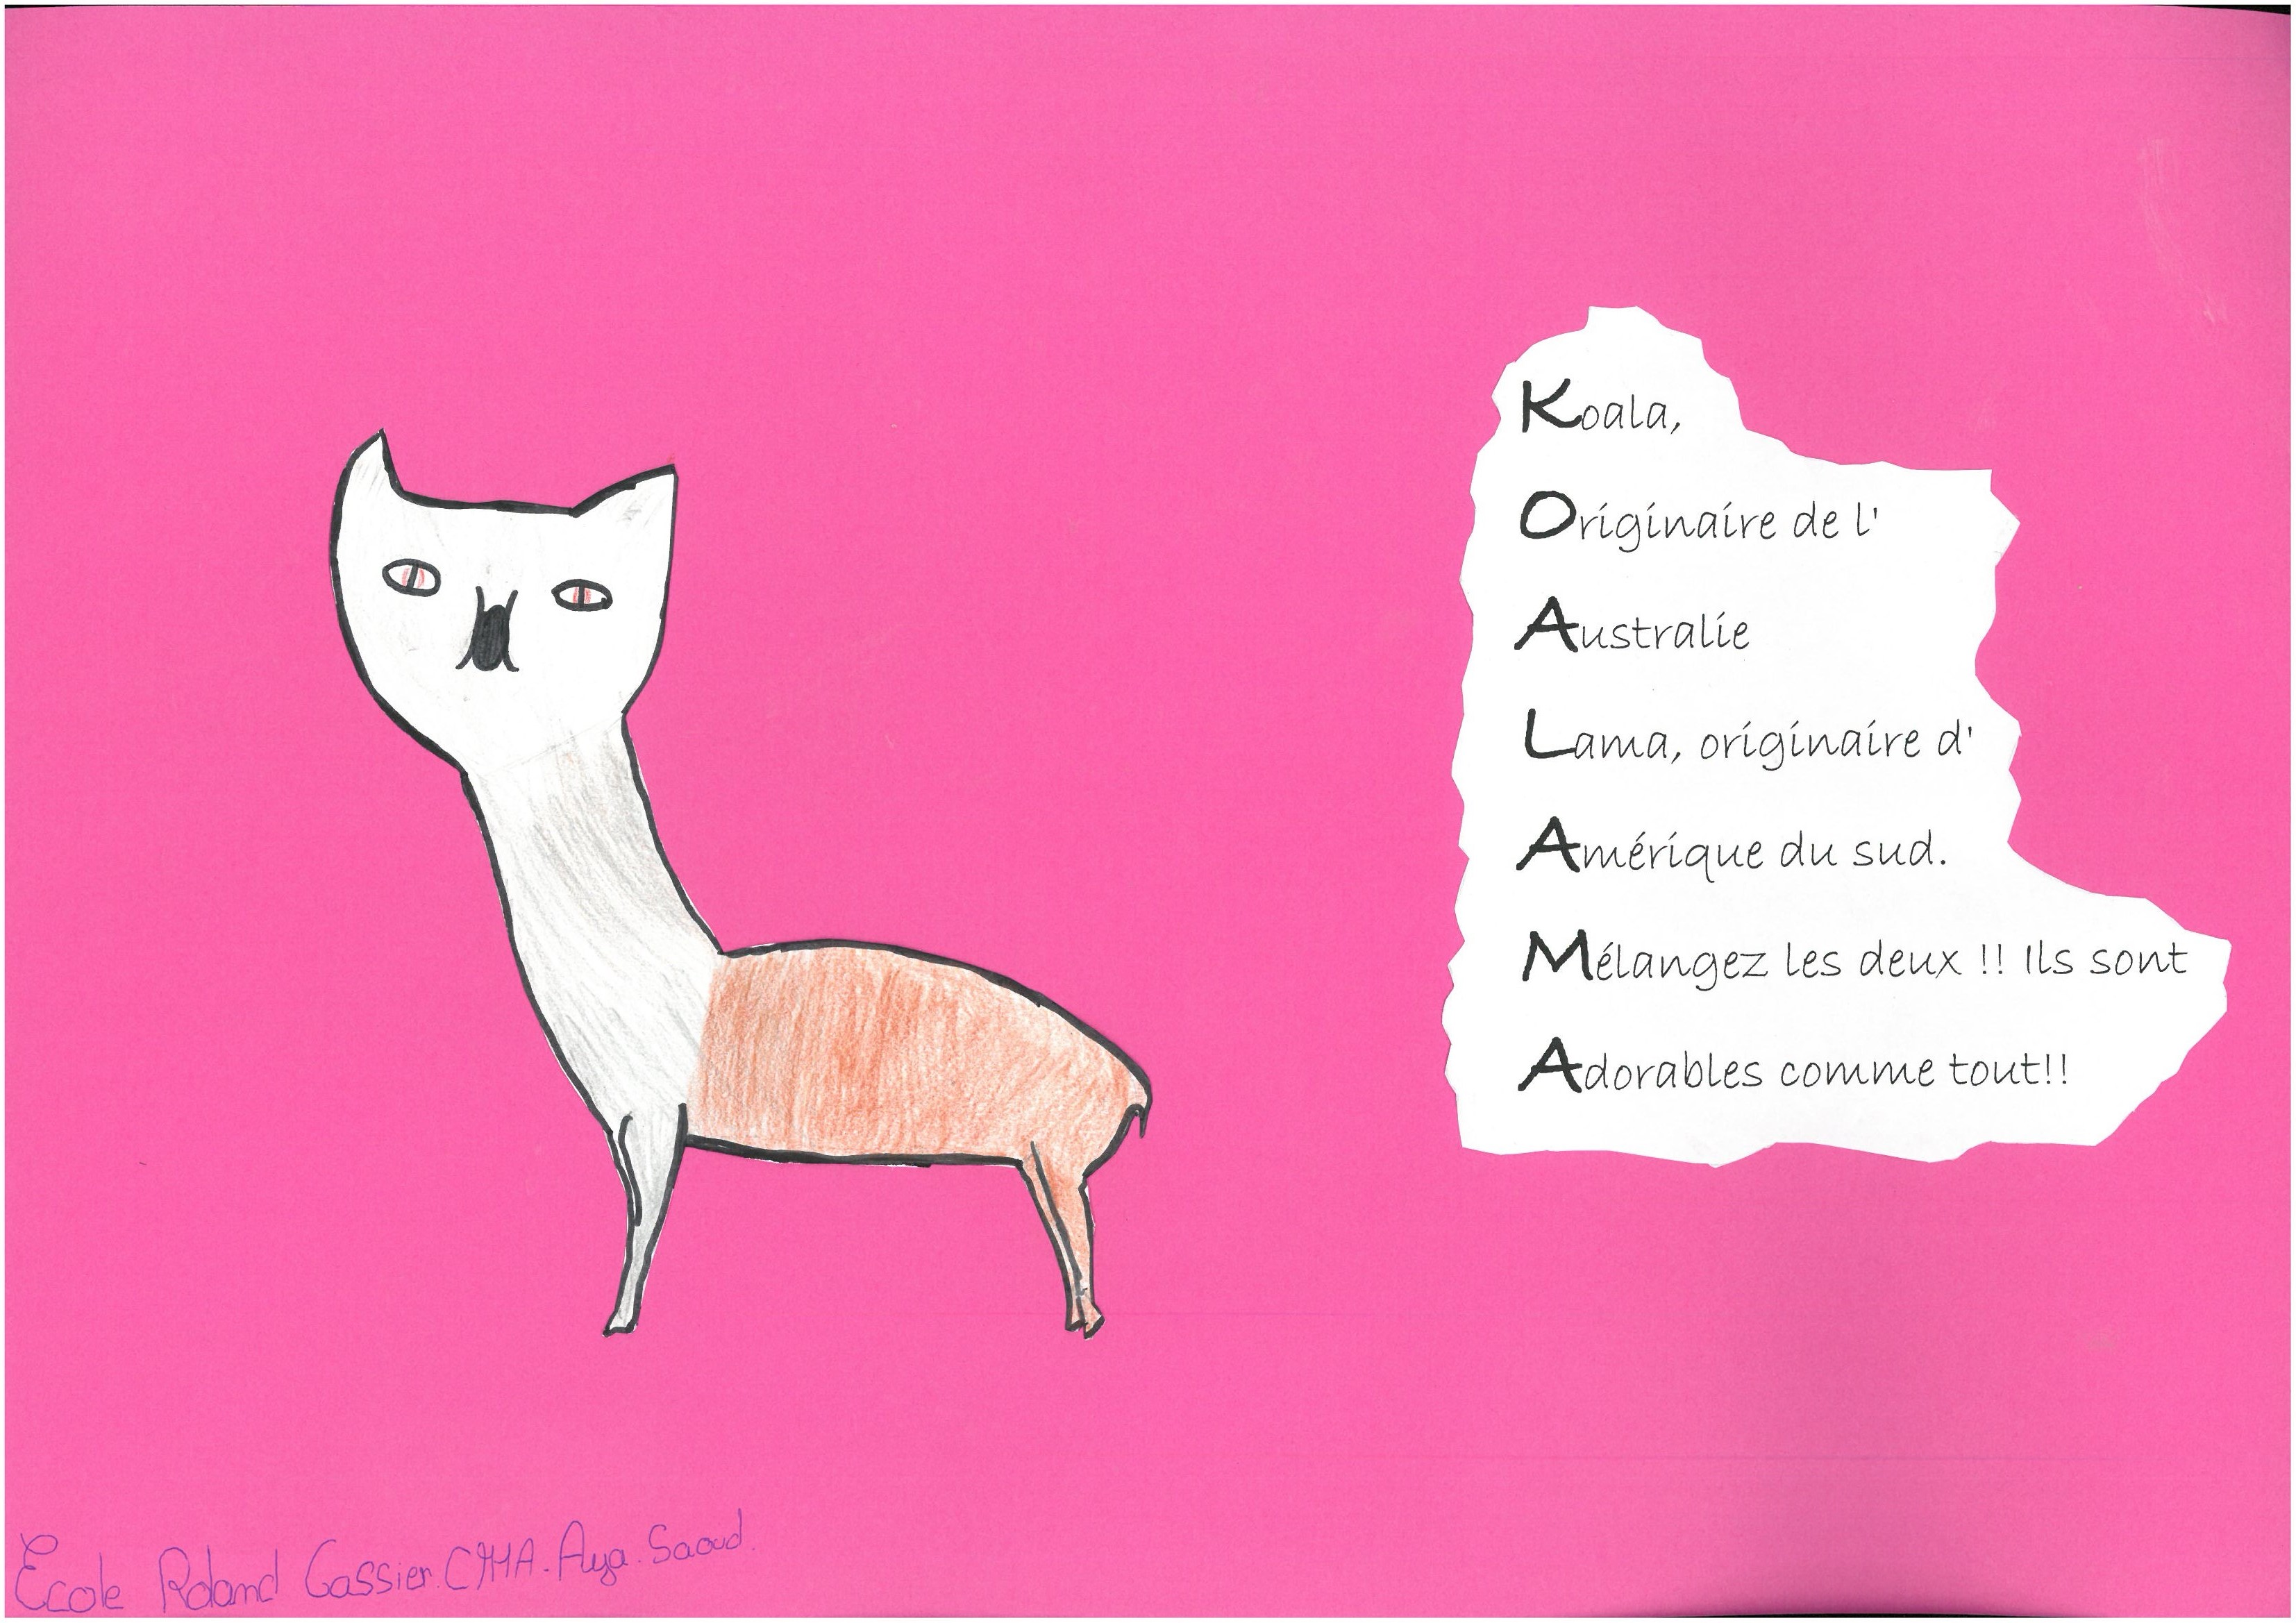 Koala,
Originaire de l'
Australie
Lama, originaire d'
Amérique du sud.
Mélangez les deux !! Ils sont
Adorables comme tout!!
Ecole Roland Cassier. Aya. Saoud.